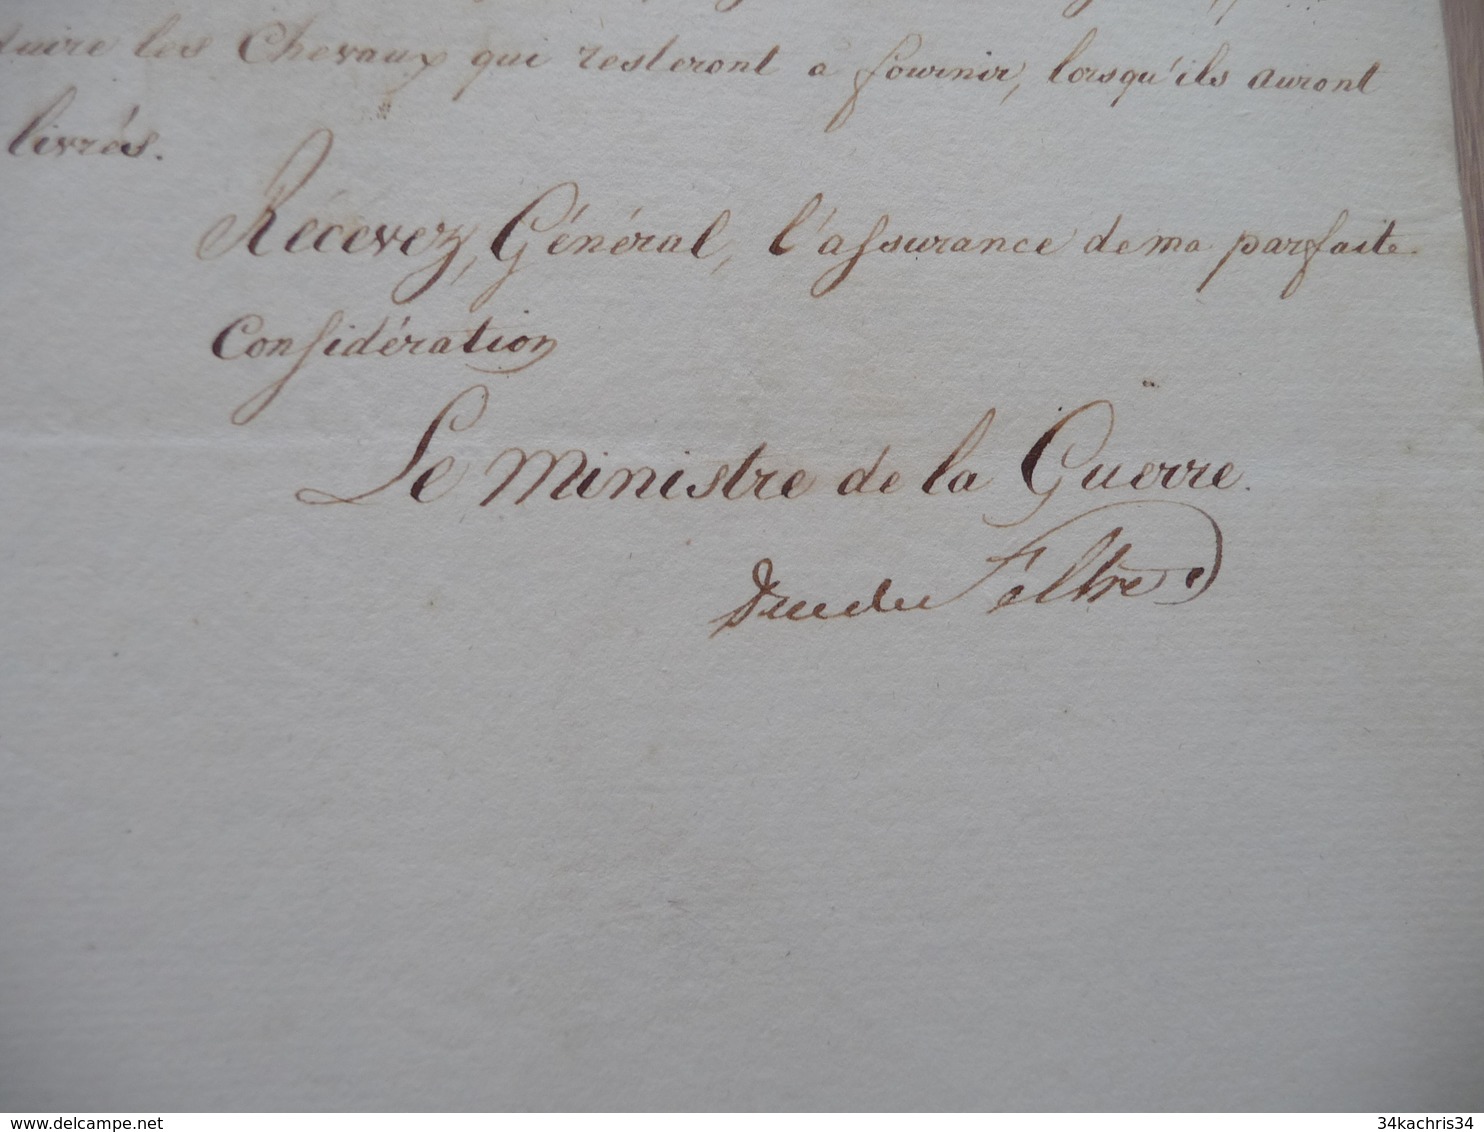 les Chevaux qui resteront a fournir, lorsqu'ils auront
livrés.
Récevez, Général, l'assurance de ma parfaite
Considération
Le Ministre de la Guerre.
Duc de Feltre
delcampe.net
34kachris34